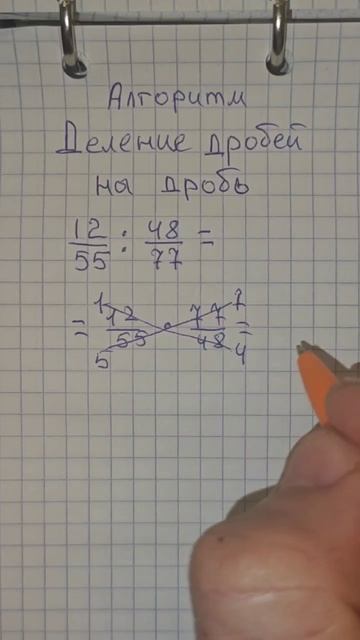 Алгоритм
Деление дробей
на дробь
12/55 : 48/77 =
1 7
= 12/55 · 77/48 =
5 4